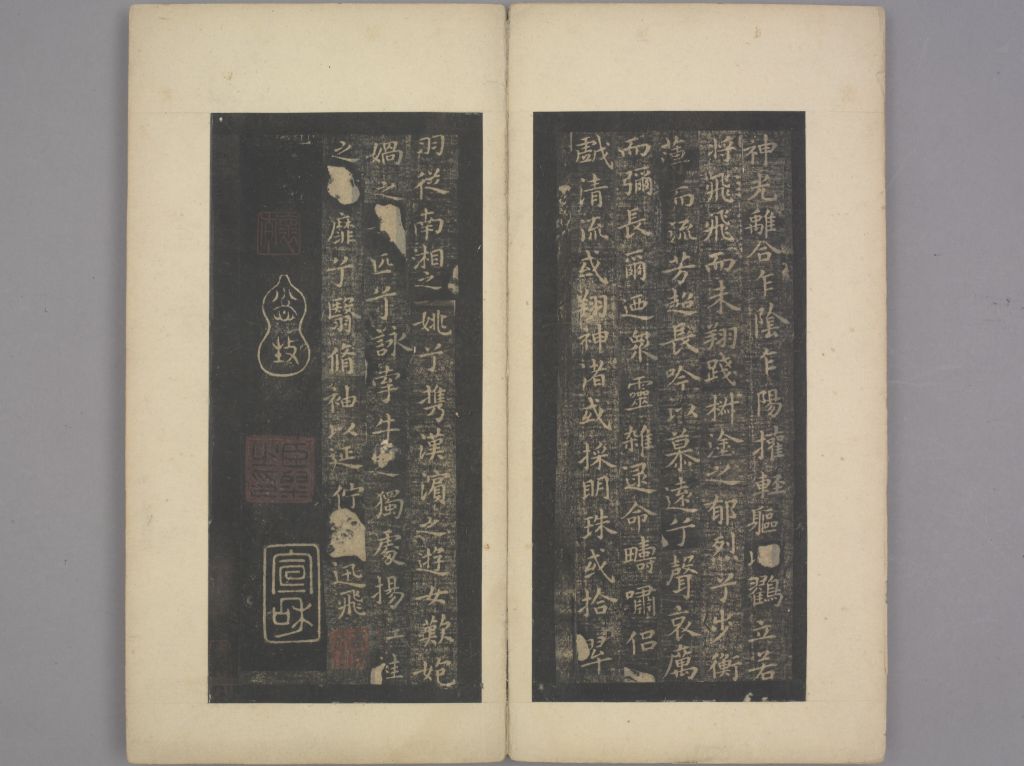 神光離合乍陰乍陽擢輕軀以鶴立若
將飛飛而未翔踐椒塗之郁烈兮步衡
薄而流芳超長吟以慕遠兮聲哀厲
而彌長爾迺眾靈雜遝命疇嘯侶
戲清流或翔神渚或採明珠或拾翠
羽從南湘之二姚兮攜漢濱之遊女歎匏
媧之無匹兮詠牽牛之獨處揚
之 靡兮翳脩袖以延佇 迅飛
宣和